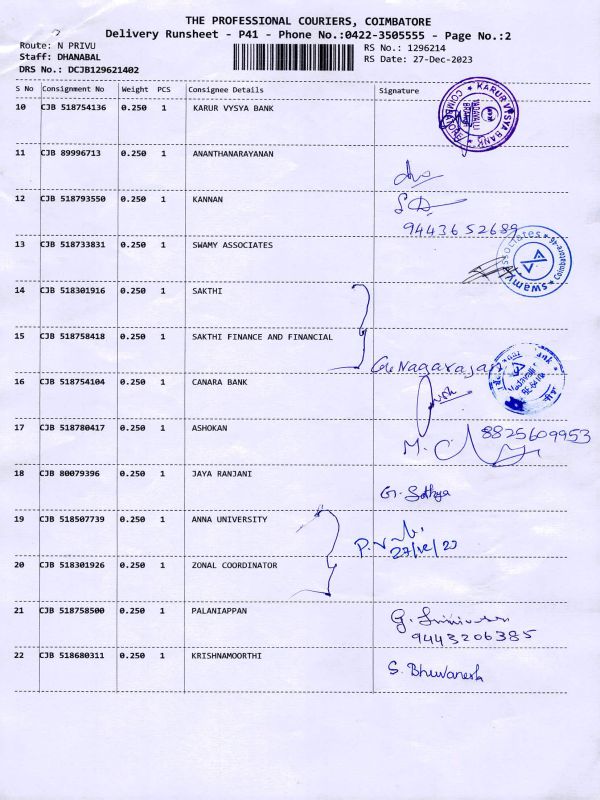 THE PROFESSIONAL COURIERS, COIMBATORE
Delivery Runsheet - P41 - Phone No.:0422-3505555 - Page No.:2
Route: N PRIVU
RS No.: 1296214
Staff: DHANABAL
RS Date: 27-Dec-2023
DRS No.: DCJB129621402
S No Consignment No Weight PCS Consignee Details Signature
10 CJB 518754136 0.250 1 KARUR VYSYA BANK
KARUR VYSYA BANK
11 CJB 89996713 0.250 1 ANANTHANARAYANAN
12 CJB 518793550 0.250 1 KANNAN
9443652689
13 CJB 518733831 0.250 1 SWAMY ASSOCIATES
swamy associates * Coimbatore-46 *
14 CJB 518301916 0.250 1 SAKTHI
15 CJB 518758418 0.250 1 SAKTHI FINANCE AND FINANCIAL
Nagarajan
16 CJB 518754104 0.250 1 CANARA BANK
17 CJB 518780417 0.250 1 ASHOKAN
8825609953
M.
18 CJB 80079396 0.250 1 JAYA RANJANI
G. Sathya
19 CJB 518507739 0.250 1 ANNA UNIVERSITY
27/12/23
20 CJB 518301926 0.250 1 ZONAL COORDINATOR
21 CJB 518758500 0.250 1 PALANIAPPAN
9443206385
22 CJB 518680311 0.250 1 KRISHNAMOORTHI
S. Bhuvanesh